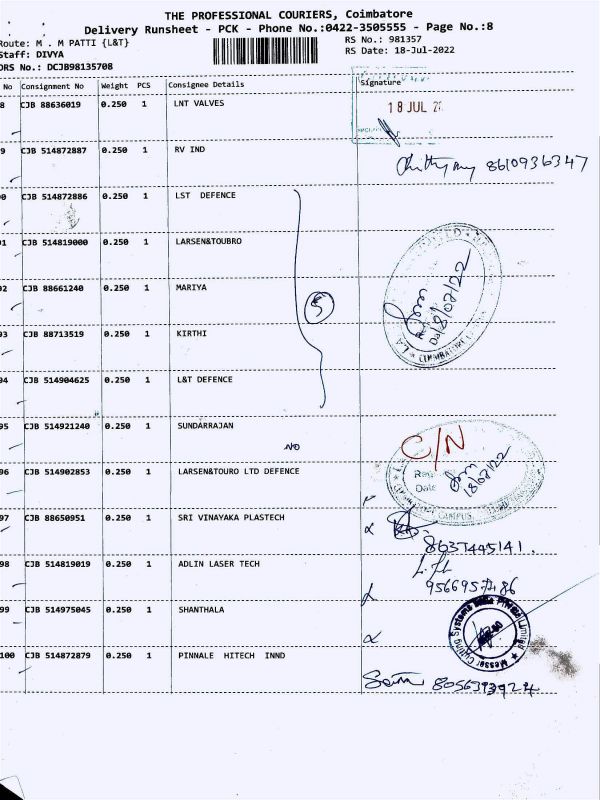 THE PROFESSIONAL COURIERS, Coimbatore
Delivery Runsheet - PCK - Phone No.:0422-3505555 - Page No.:8
Route: M . M PATTI {L&T}
RS No.: 981357
Staff: DIVYA
RS Date: 18-Jul-2022
DRS No.: DCJB98135708
No Consignment No Weight PCS Consignee Details Signature
8 CJB 88636019 0.250 1 LNT VALVES
18 JUL 2
9 CJB 514872887 0.250 1 RV IND
8610936347
0 CJB 514872886 0.250 1 LST DEFENCE
91 CJB 514819000 0.250 1 LARSEN&TOUBRO
92 CJB 88661240 0.250 1 MARIYA
5
18/07/22
COIMBATORE
93 CJB 88713519 0.250 1 KIRTHI
94 CJB 514904625 0.250 1 L&T DEFENCE
95 CJB 514921240 0.250 1 SUNDARRAJAN
NO
C/N
96 CJB 514902853 0.250 1 LARSEN&TOURO LTD DEFENCE
Date
18/07/22
CAMPUS
97 CJB 88650951 0.250 1 SRI VINAYAKA PLASTECH
8637445141.
98 CJB 514819019 0.250 1 ADLIN LASER TECH
99 CJB 514975045 0.250 1 SHANTHALA
Messer Cutting Systems India Private Limited
100 CJB 514872879 0.250 1 PINNALE HITECH INND